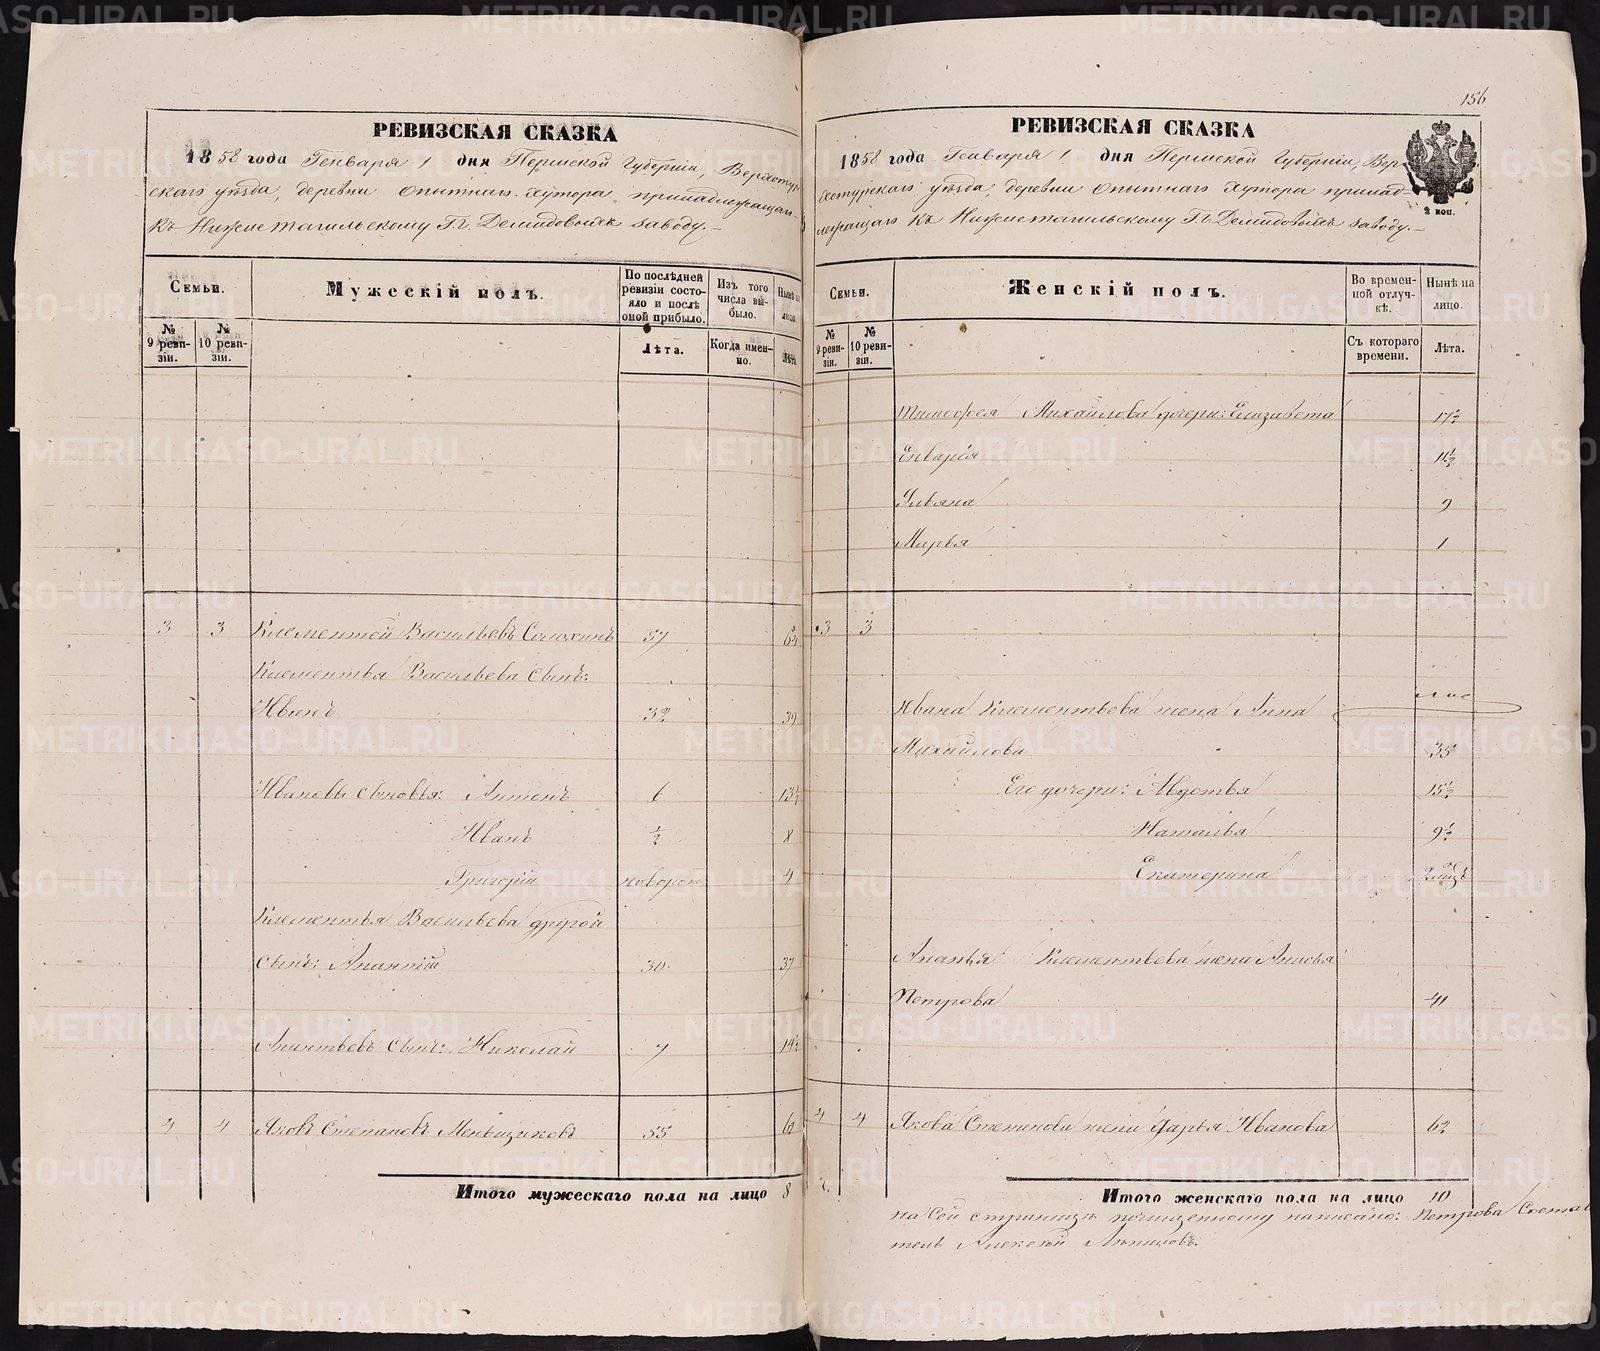 РЕВИЗСКАЯ СКАЗКА
1858 года Генваря 1 дня Пермской Губерніи, Верхотур
скаго уѣзда, деревни опытнаго хутора принадлежащаго
къ Нижнетагильскому Г.г. Демидовыхъ заводу.
Семьи.
Мужескій полъ.
По послѣдней ревизіи состояло и послѣ оной прибыло.
Изъ того числа выбыло.
Нынѣ на лицо.
№ 9 ревизіи.
№ 10 ревизіи.
Лѣта.
Когда именно.
Лѣта.
3 3 Клементей Васильевъ 57
Клементья Васильева сынъ:
Иванъ 39
Ивановы сыновья: Антонъ 6 13½
Иванъ ½ 8
Григорій новорож 4
Клементья Васильева другой
сынъ: Анантій 30 37
Анантьевъ сынъ: Николай 7 14½
4 4 Яковъ Степановъ Меньшиковъ 55
Итого мужескаго пола на лицо 8
156
РЕВИЗСКАЯ СКАЗКА
1858 года Генваря 1 дня Пермской Губерніи, Вер
хотурскаго уѣзда, деревни опытнаго хутора принад
лежащаго къ Нижнетагильскому Г.г. Демидовыхъ заводу.
2 коп.
Семьи.
Женскій полъ.
Во временной отлучкѣ.
Нынѣ на лицо.
№ 9 ревизіи.
№ 10 ревизіи.
Съ котораго времени.
Лѣта.
Тимофея Михайлова дочери: Елизавета 17½
Енварія 11½
Ульяна 9
Марья 1
3 3
Ивана Клементьева жена Анна
Михайлова 35
Его дочери: Авдотья 15½
Наталья 9½
Екатерина
Ананья Клементьева жена Анисья
Петрова 41
4 4 Якова Степанова жена Дарья Иванова
Итого женскаго пола на лицо 10
на сей страницѣ почищенному написано: Петрова
Алексѣй
METRIKI.GASO-URAL.RU